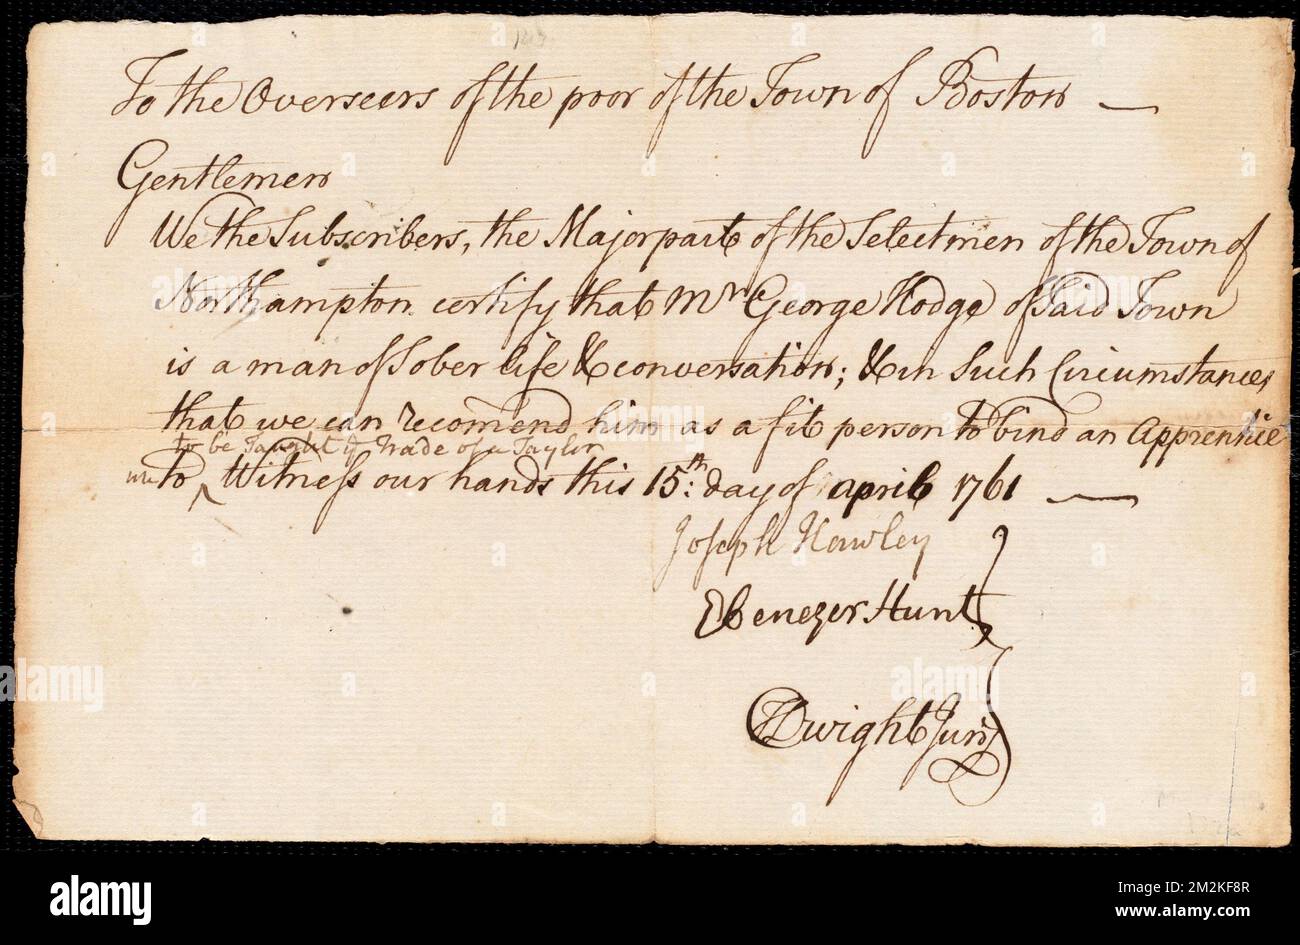 To the Overseers of the poor of the Town of Boston —
Gentlemen
We the Subscribers, the Major part of the Selectmen of the Town of
Northampton certify that Mr. George Hodge of Said Town
is a man of Sober life & conversation; & in Such Circumstances
that we can recomend him as a fit person to bind an apprentice
to be Taught ye Trade of a Taylor
unto ‸ Witness our hands this 15th: day of april 1761 —
Joseph Hawley
Ebenezer Hunt
Dwight Junr
alamy
Image ID: 2M2KF8R
www.alamy.com